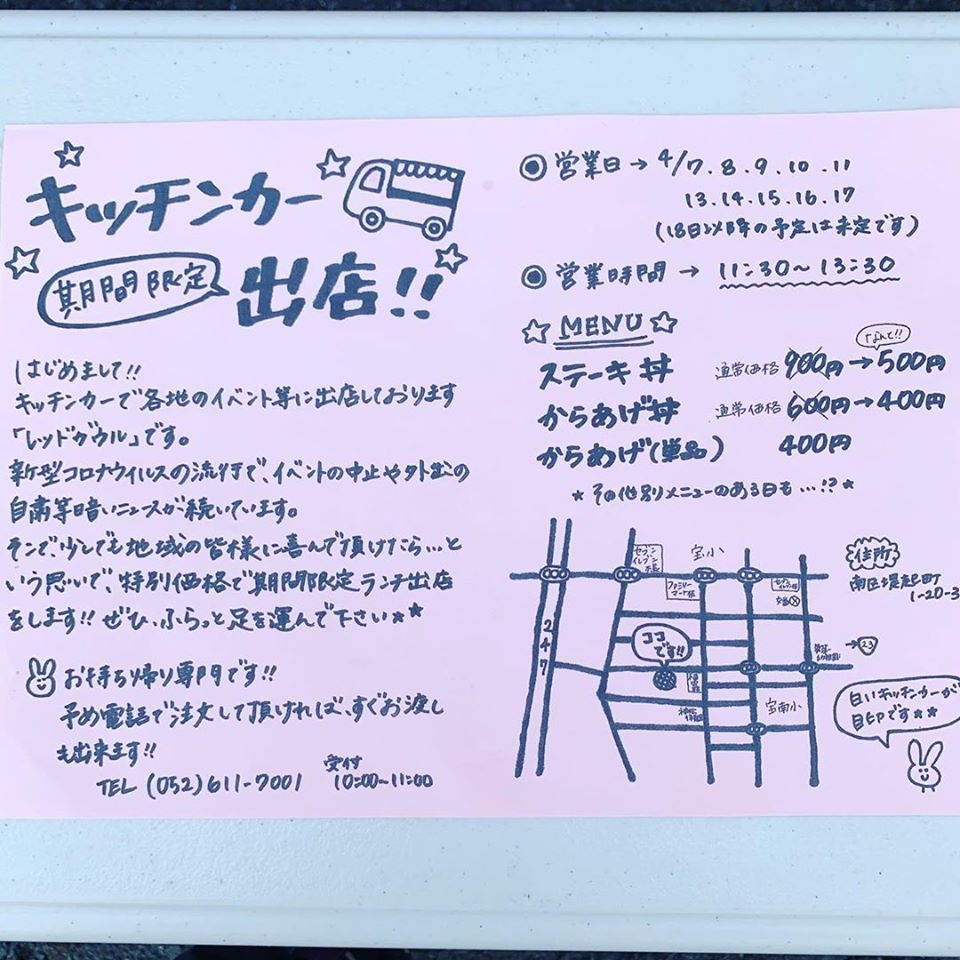 キッチンカー
期間限定
出店!!
はじめまして!!
キッチンカーで各地のイベント等に出店しております
「レッドガウル」です。
新型コロナウイルスの流行で、イベントの中止や外出の
自粛等暗いニュースが続いています。
そこで、少しでも地域の皆様に喜んで頂けたら…と
いう思いで、特別価格で期間限定ランチ出店
をします!! ぜひ、ふらっと足を運んで下さい★★
お持ち帰り専門です!!
予め電話で注文して頂ければ、すぐお渡し
も出来ます!!
TEL (052)611-7001 受付 10:00~11:00
◎営業日→4/7.8.9.10.11
13.14.15.16.17
(18日以降の予定は未定です)
◎営業時間 → 11:30~13:30
☆MENU☆
なんと!!
ステーキ丼 通常価格 900円→500円
からあげ丼 通常価格 600円→400円
からあげ(単品) 400円
★その他別メニューのある日も…!?★
セブン
イレブン
宝小
ファミリー
マート
247
ココ
です!!
→23
宝南小
住所
南区堤起町
1-20-3
白いキッチンカーが
目印です★★